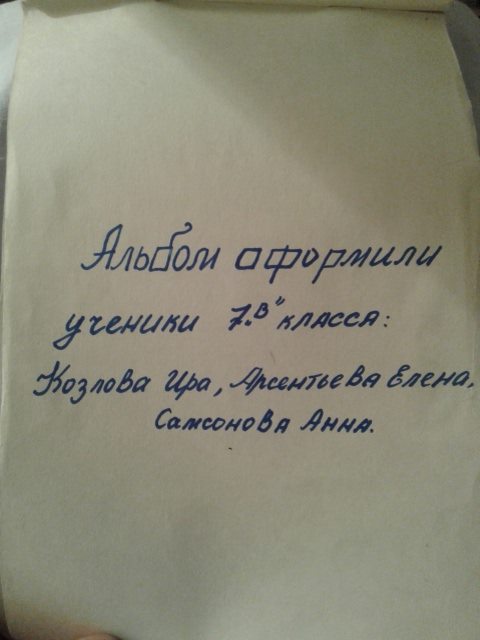 Альбом оформили
ученики 7„В" класса:
Козлова Ира, Арсентьева Елена,
Самсонова Анна.